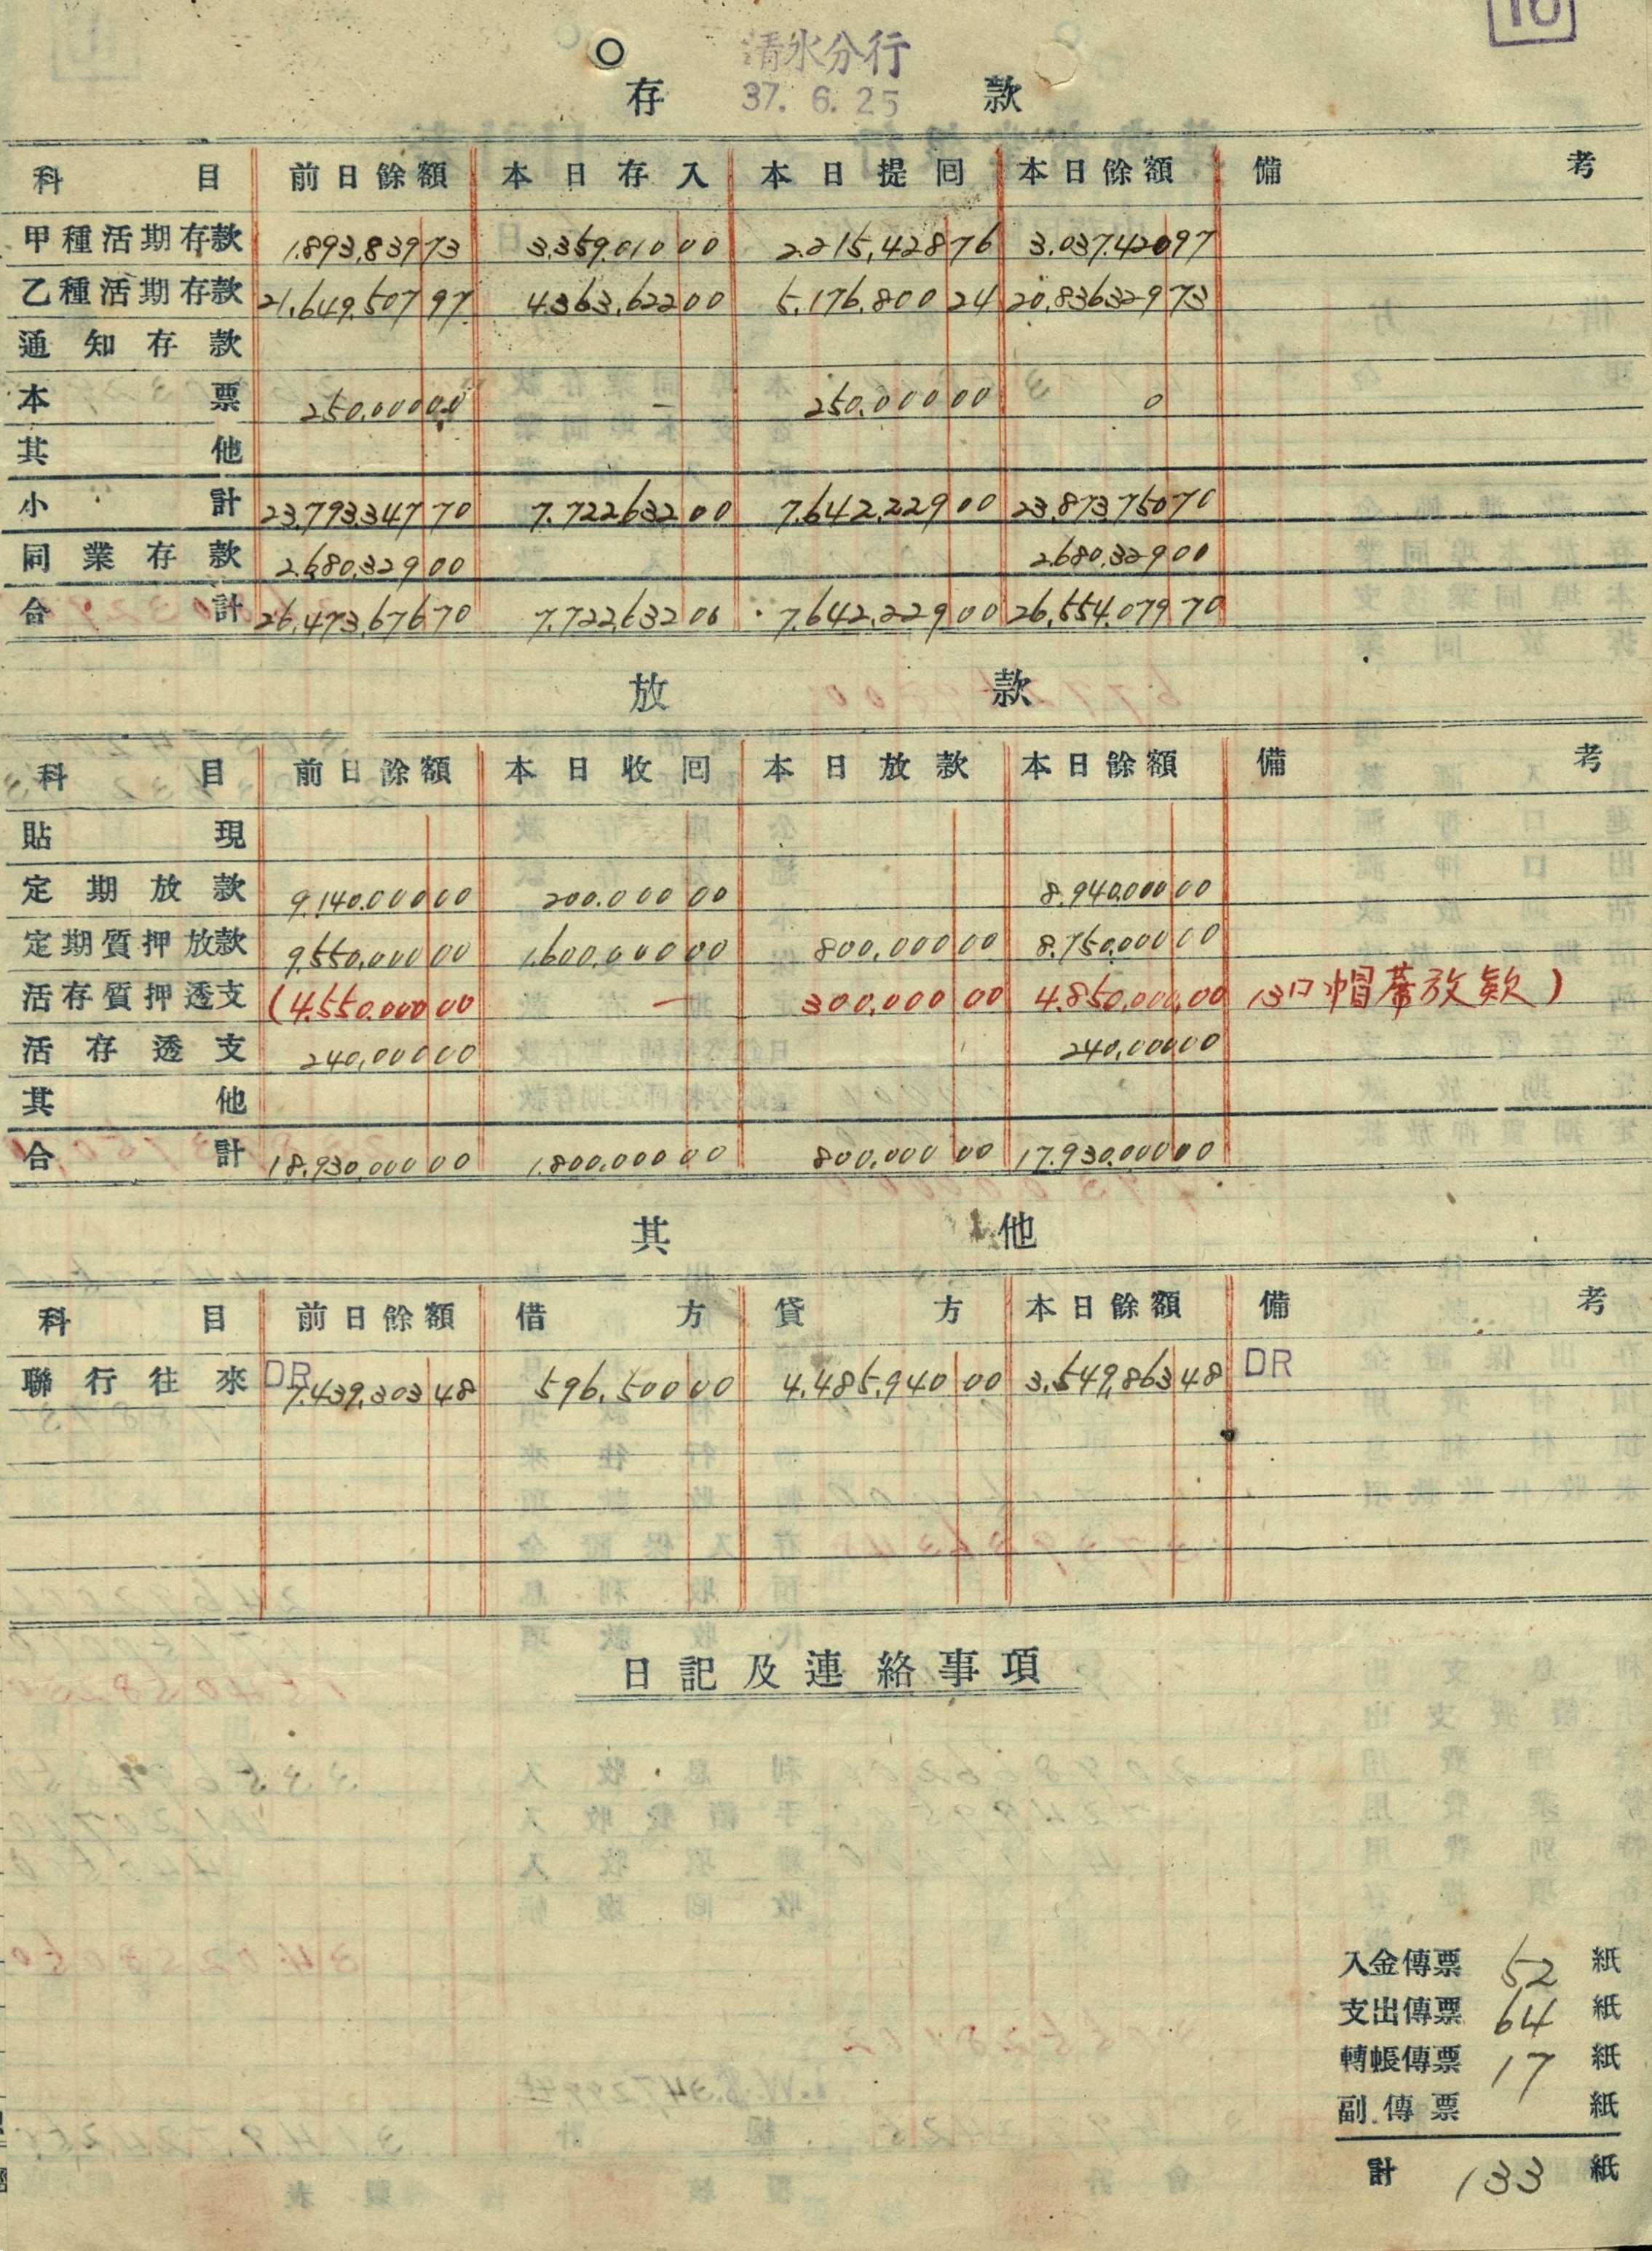 10
清水分行
存 37. 6. 25 款
科目 前日餘額 本日存入 本日提回 本日餘額 備考
甲種活期存款 1.893,839 73 3,359,010 00 2.215,428 76 3.037.420 97
乙種活期存款 21,649,507 97 4.363,622 00 5,176,800 24 20,836329 73
通知存款
本票 250,000 00 — 250,000 00 0
其他
小計 23,793347 70 7.722632 00 7,642,229 00 23,873750 70
同業存款 2,680,329 00 2680,329 00
合計 26,473,676 70 7.722,632 00 7.642,229 00 26,554,079 70
放款
科目 前日餘額 本日收回 本日放款 本日餘額 備考
貼現
定期放款 9,140,000 00 200,000 00 8,940,000 00
定期質押放款 9,550,000 00 1,600,000 00 800,000 00 8,750,000 00
活存質押透支 (4,550,000 00 — 300,000 00 4,850,000,00 13口帽蓆放款)
活存透支 240,000 00 240,000 00
其他
合計 18,930,000 00 1,800,000 00 800,000 00 17,930,000 00
其他
科目 前日餘額 借方 貸方 本日餘額 備考
聯行往來 DR 7,439,303 48 596,500 00 4,485,940 00 3,549,863 48 DR
日記及連絡事項
入金傳票 52 紙
支出傳票 64 紙
轉帳傳票 17 紙
副傳票 紙
計 133 紙